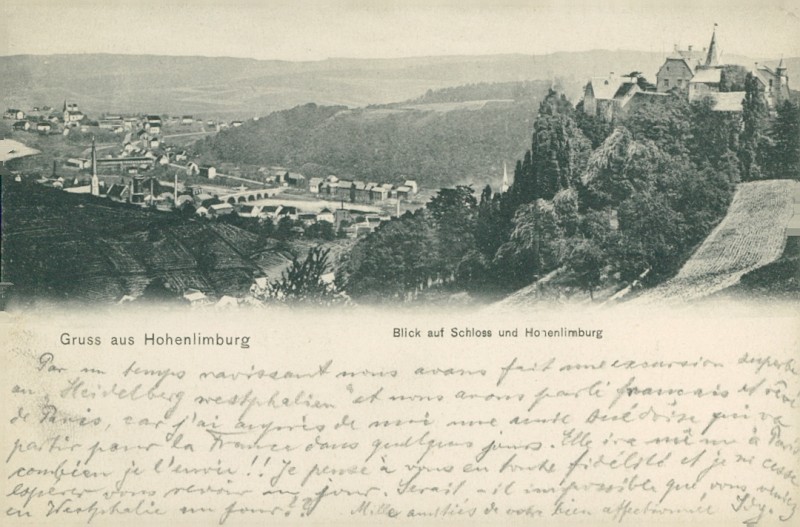 Gruss aus Hohenlimburg
Blick auf Schloss und Hohenlimburg
Par un temps ravissant nous avons fait une excursion superbe
au "Heidelberg westphalien" et nous avons parlé français et rêvé
de Paris, car j'ai auprès de moi une amie suédoise qui va
partir pour la France dans quelques jours. Elle ira même à Paris
combien je l'envie!! Je pense à vous en toute fidélité et je ne cesse
espérer vous revoir un jour. Serait-il impossible que vous veniez
en Westphalie un jour?? Mille amitiés de votre bien affectionnée